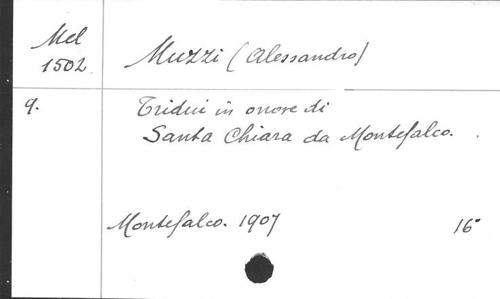 Mel
1502
Muzzi (Alessandro)
9.
Tridui in onore di
Santa Chiara da Montefalco.
Montefalco. 1907
16°